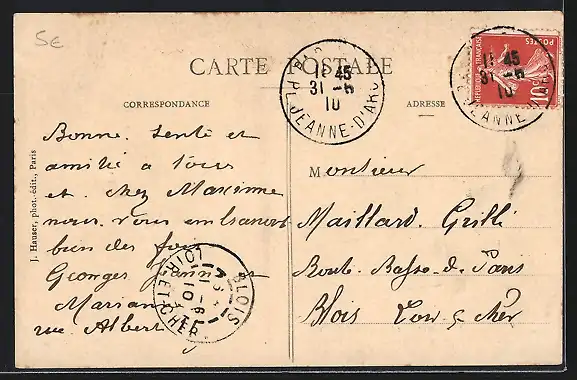 5E
CARTE POSTALE
CORRESPONDANCE
ADRESSE
11 45
31 -5
10
PL. JEANNE-D'ARC
11 45
31 -5
10
JEANNE
RÉPUBLIQUE FRANÇAISE
POSTES
10c
Bonne Santé et
amitié a tous
et chez Maxime
nous vous embrassons
bien des fois
Georges Jeanne et
Mariane
rue Albert
Monsieur
Maillard. Grilli
Route Basse de Paris
Blois Loir & Cher
BLOIS
LOIR-ET-CHER
J. Hauser, phot.-édit., Paris